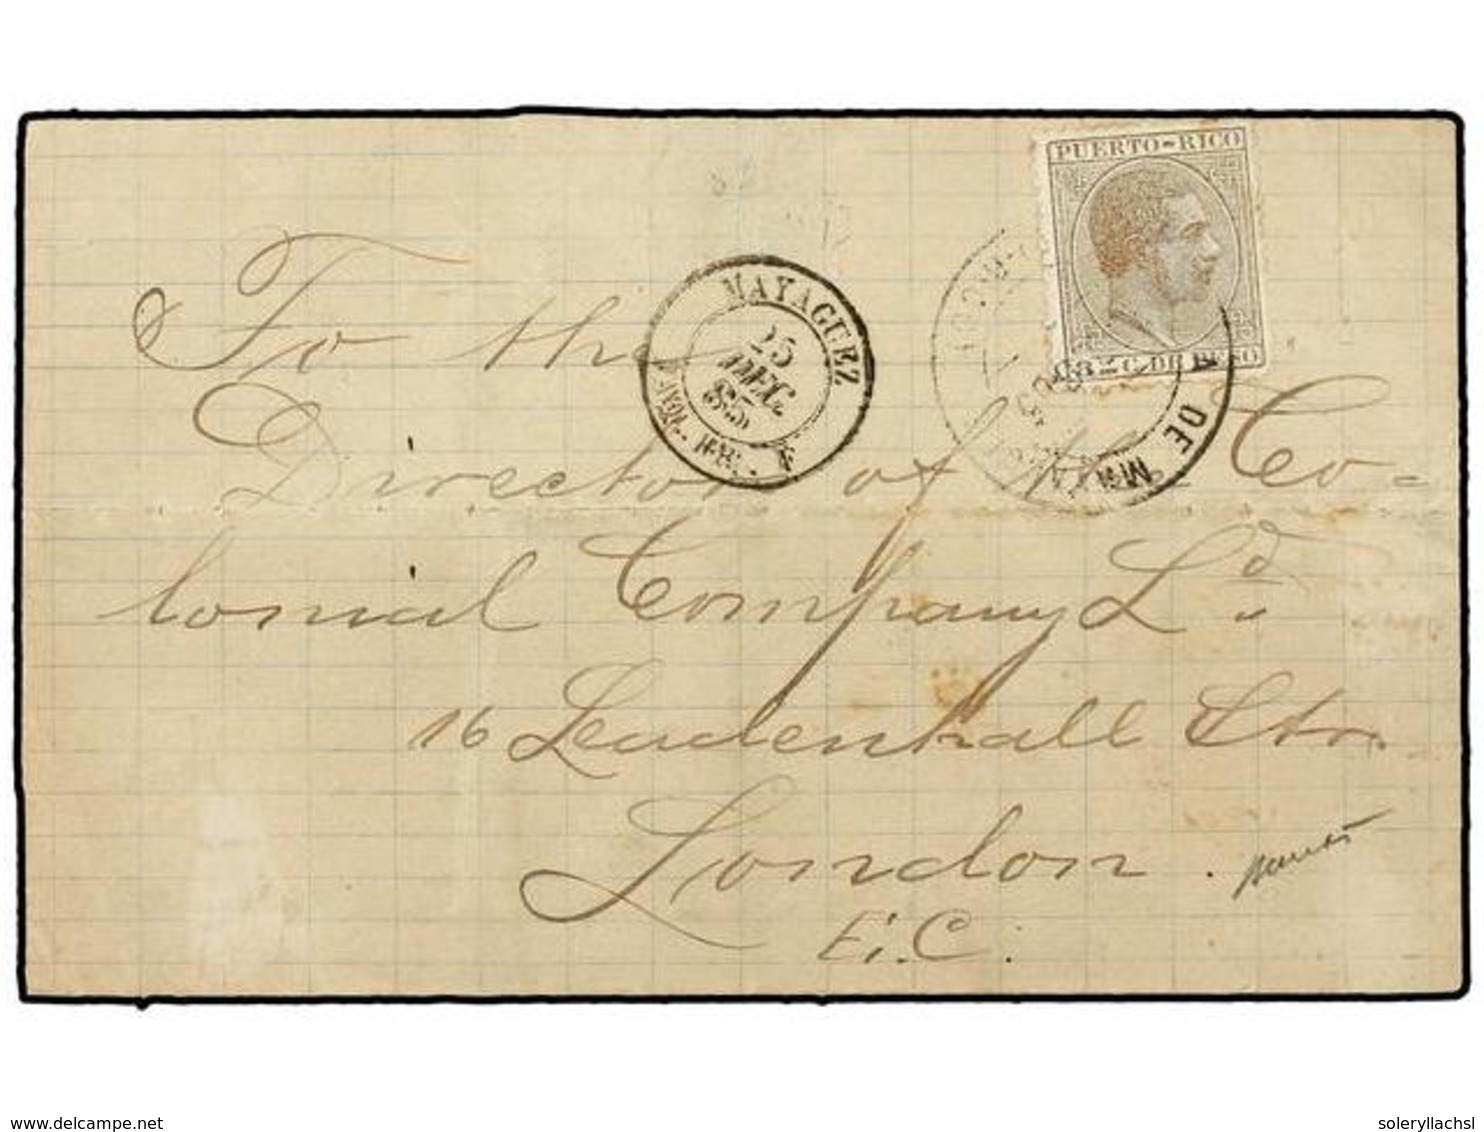 PUERTO-RICO
MAYAGUEZ
25
DEC.
85
C. DE PESO
DE
To the
Director of the Co-
lonial Company Ld
16 Leadenhall Str.
London.
E.C.
delcampe.net
soleryllachsl